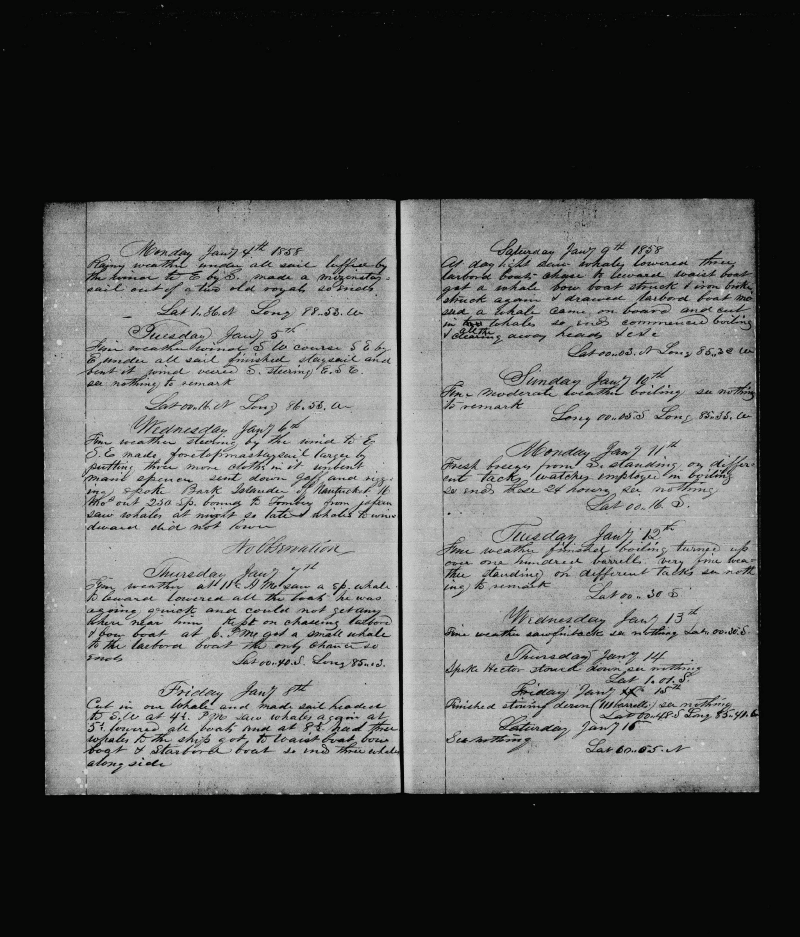 Monday Jany 4th 1858
Rainy weather under all sail luffed by
the wind to E by S. made a mizenstay-
sail out of a two old royals so ends
Lat 1.36 N Long 88.53. W
Tuesday Jany 5th
Fine weather wind S W course S E by
E under all sail finished staysail and
bent it wind veered S. steering E S E
see nothing to remark
Lat 00.16. N Long 86.53. W
Wednesday Jany 6th
Fine weather steering by the wind to E
S. E made foretopmaststaysail larger by
putting three more cloths in it unbent
main spencer sent down gaff and rigg-
ing spoke Bark Islander of Nantucket. 14
mos out 250 Sp. bound to Tombez from
saw whales at night so late & whales to win-
dward did not lower
No Observation
Thursday Jany 7th
Fine weather at 11½ A Mc saw a sp. whale
to leward lowered all the boats he was
agoing quick and could not get any
where near him. Kept on chasing larbord
& bow boat at 6. P Mc got a small whale
to the larbord boat the only chance so
Ends Lat 00.40. S. Long 85.13.
Friday Jany 8th
Cut in our whale and made sail headed
to S. W at 4½ P Mc saw whales again at
5½ lowered all boats and at 8½ had three
whales to the ship got to Waist boat, bow
boat & Starbord boat so ends three whales
along side
Saturday Jany 9th 1858
At day light saw whales lowered three
larbord boats chase to leward waist boat
got a whale bow boat struck & iron broke
struck again & drawed larbord boat mis
sed a whale came on board and cut
in two whales so ends commenced boiling
all the
& clearing away heads &c &c
Lat 00.03. N Long 85.32 W
Sunday Jany 10th
Fine moderate weather boiling see nothing
to remark
Long 00.05 S Long 85.35. W
Monday Jany 11th
Fresh breezes from S. standing on differ-
ent tacks watches employed in boiling
so ends these 24 hours see nothing
Lat 00.16 S.
Tuesday Jany 12th
Fine weather finished boiling turned up
over one hundred barrells very fine wea-
ther standing on different tacks see noth
ing to remark
Lat 00.30 S
Wednesday Jany 13th
Fine weather saw finback see nothing Lat. 00.30. S
Thursday Jany 14
Spoke Hector stowed down see nothing
Lat 1.01. S.
Friday Jany 15th
Finished stowing down barrells see nothing
Lat 00.48 S Long 85.41. W
Saturday Jany 16
See nothing
Lat 00.05. N